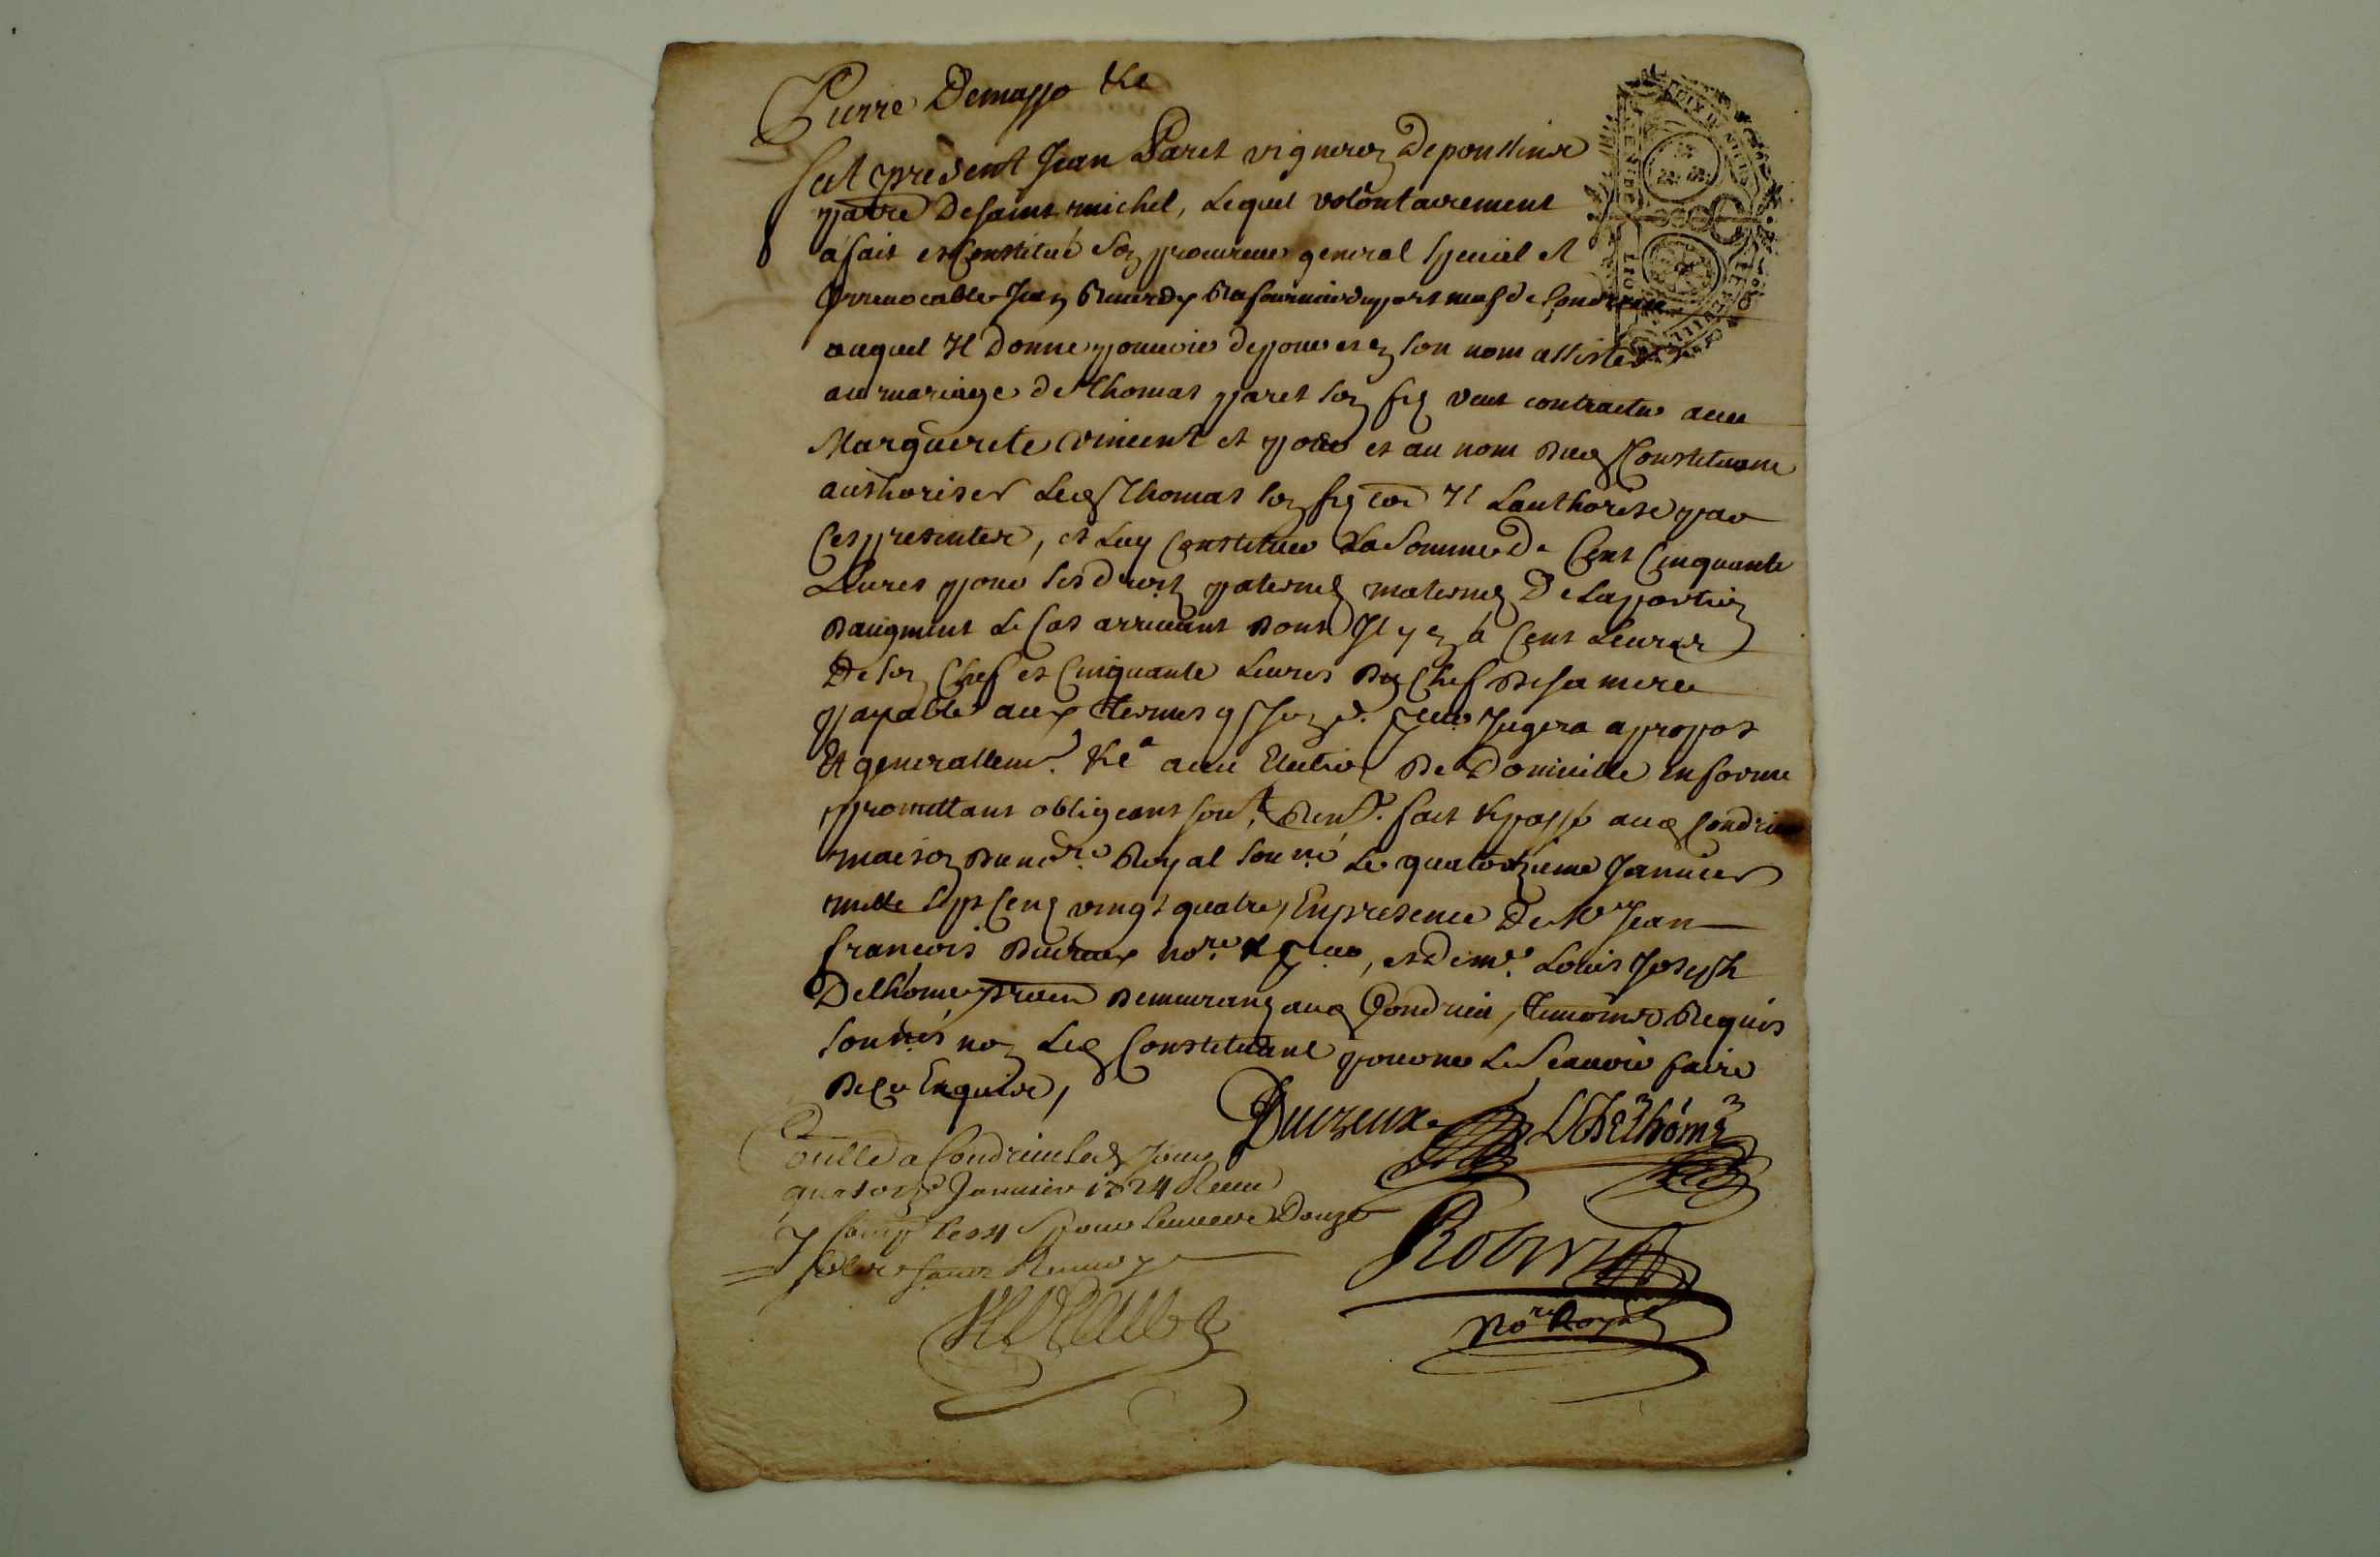 Pierre Demasso &c
fut present Jean Paret vigneron de poussine
parre de saint michel, lequel volontairement
a fait et constitué son procureur general special et
irrevocable Jean port mas de Condrieu
auquel Il donne pouvoir de pour et en son nom assister
au mariage de Thomas paret son fils veut contracter avec
Marguerite vincent et pour et au nom dud Constituant
authoriser led Thomas son fils com Il Lauthorise par
ces presentes, et Luy Constituer La Somme de Cent Cinquante
Livres pour ses droits paternels maternels De la portion
daugment le cas arrivant dont Il y en a Cent Livres
De son Chef et Cinquante Livres du Chef de sa mere
payable aux termes Jugera a propos
Et generallem.t &c.a avec Election De Domicille en forme
promettant obligeant soub.t Ren.t fait & passé aud Condrieu
maison du no.re Royal sou.né Le quatorzieme Janvier
mille sept cens vingt quatre, En presence De Me Jean
francois Ducreux no.re & , et de me. Louis Joseph
Delhome praen demeurans aud Condrieu, temoins Requis
sou.nés non led Constituant pour ne le scavoir faire
de ce Enquise,
Ducreux LJDelhome
Coullé a Condrieu led Jour
quatorze Janvier 1724 Receu
Comp les 4 s pour livre Douze
solds sans Renvoy
Robin
No.re Royal